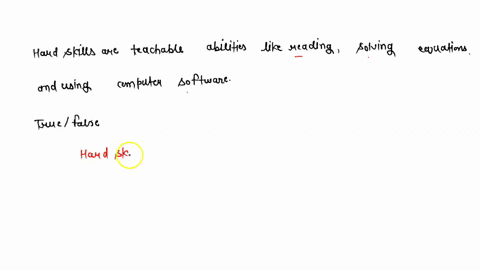 Hard skills are teachable abilities like reading, solving equations.
and using computer software.
True/false
Hard sk.